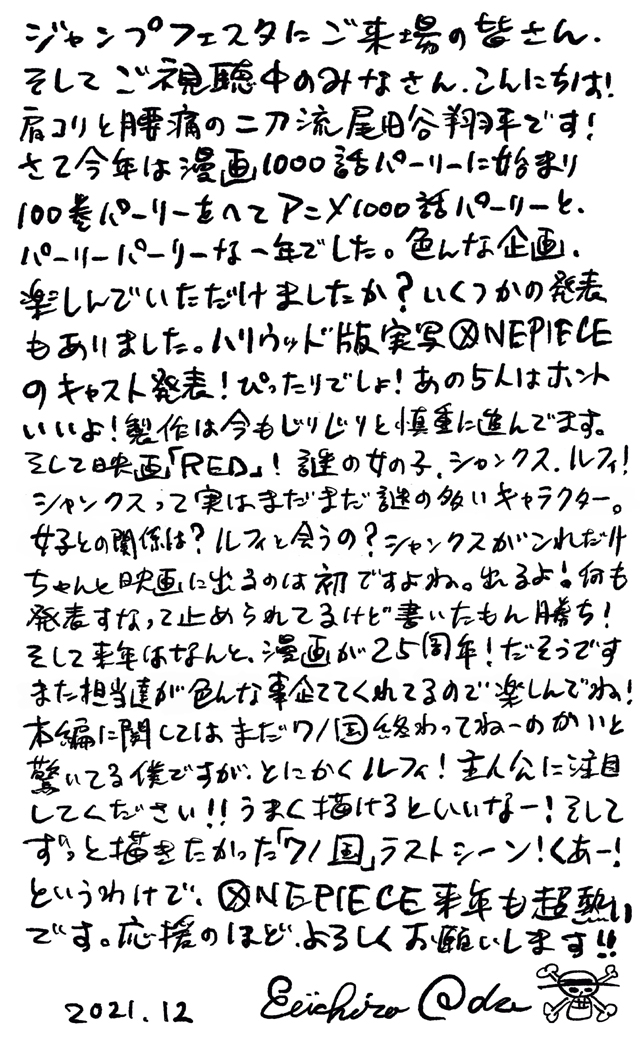 ジャンプフェスタにご来場の皆さん.
そしてご視聴中のみなさん.こんにちは!
肩コリと腰痛の二刀流尾田谷翔平です!
さて今年は漫画1000話パーリーに始まり
100巻パーリーをへてアニメ1000話パーリーと、
パーリーパーリーな一年でした。色んな企画、
楽しんでいただけましたか?いくつかの発表
もありました。ハリウッド版実写ONEPIECE
のキャスト発表!ぴったりでしょ!あの5人はホント
いいよ!製作は今もじりじりと慎重に進んでます。
そして映画「RED」!謎の女の子.シャンクス.ルフィ!
シャンクスって実はまだまだ謎の多いキャラクター。
女子との関係は?ルフィと会うの?シャンクスがこれだけ
ちゃんと映画に出るのは初ですよね。出るよ!何も
発表すなって止められてるけど書いたもん勝ち!
そして来年はなんと、漫画が25周年!だそうです
また担当達が色んな事企ててくれてるので楽しんでね!
本編に関してはまだワノ国終わってねーのかいと
驚いてる僕ですが、とにかくルフィ!主人公に注目
してください!!うまく描けるといいなー!そして
ずっと描きたかった「ワノ国」ラストシーン!くあー!
というわけで、ONEPIECE来年も超熱い
です。応援のほど、よろしくお願いします!!
2021.12 Eiichiro Oda